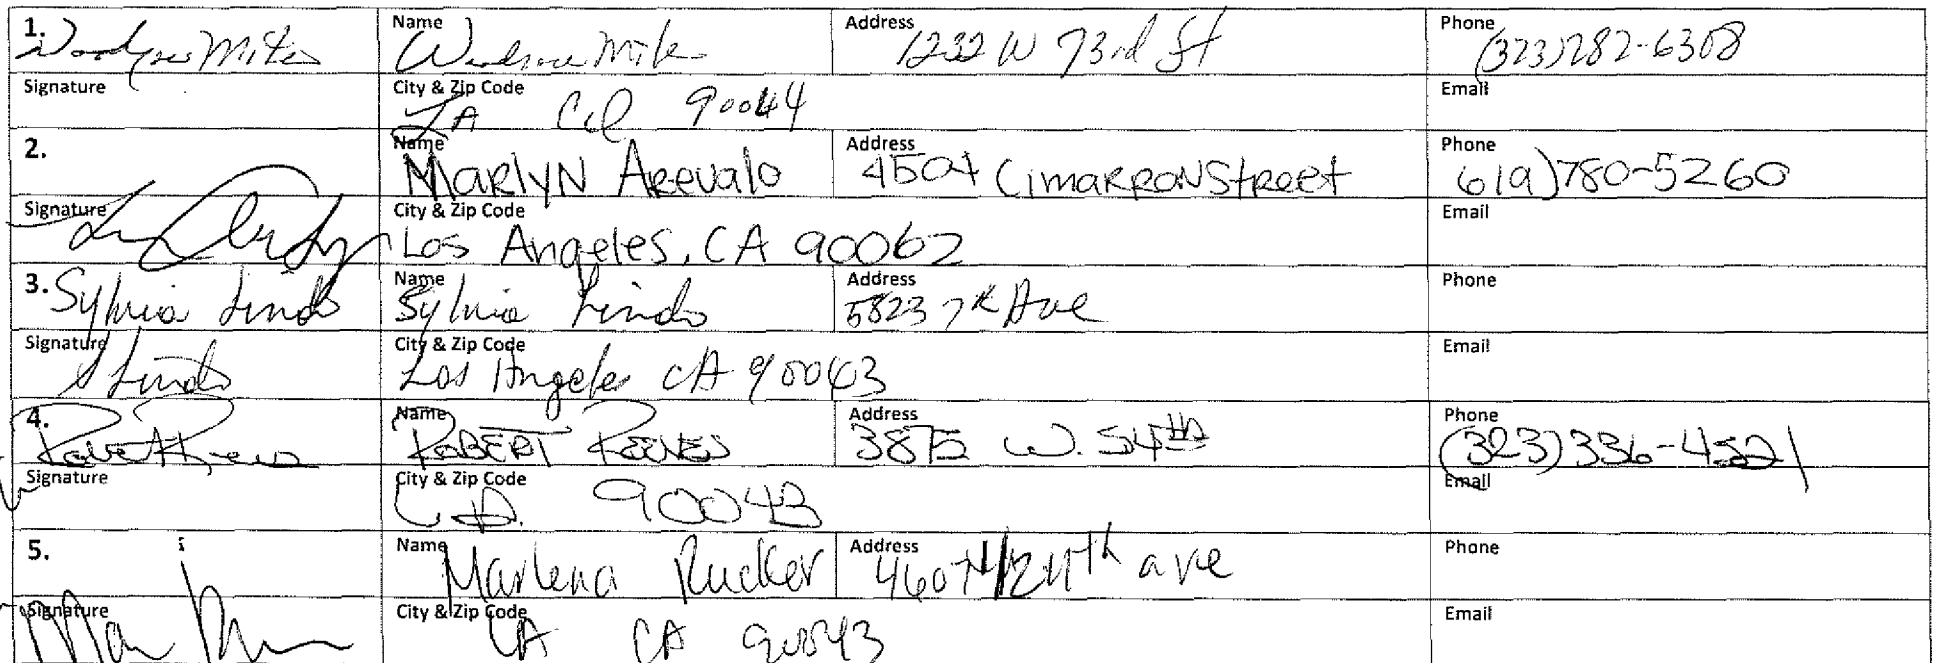 1. Name Address 1232 W 73rd St Phone (323)282-6308
Signature City & Zip Code LA Cal 90044 Email
2. Name MARlyN AREvalo Address 4504 CimaRRON StReet Phone 619)780-5260
Signature City & Zip Code Los Angeles, CA 90062 Email
3. Sylvia Lindo Name Sylvia Lindo Address 5823 7th Ave Phone
Signature S Lindo City & Zip Code Los Angeles CA 90043 Email
4. Name ROBERT REEVES Address 3875 W. 54th Phone (323)336-4521
Signature City & Zip Code L.A. 90043 Email
5. Name Marlena Rucker Address 4607 1/2 11th ave Phone
Signature City & Zip Code LA CA 90043 Email